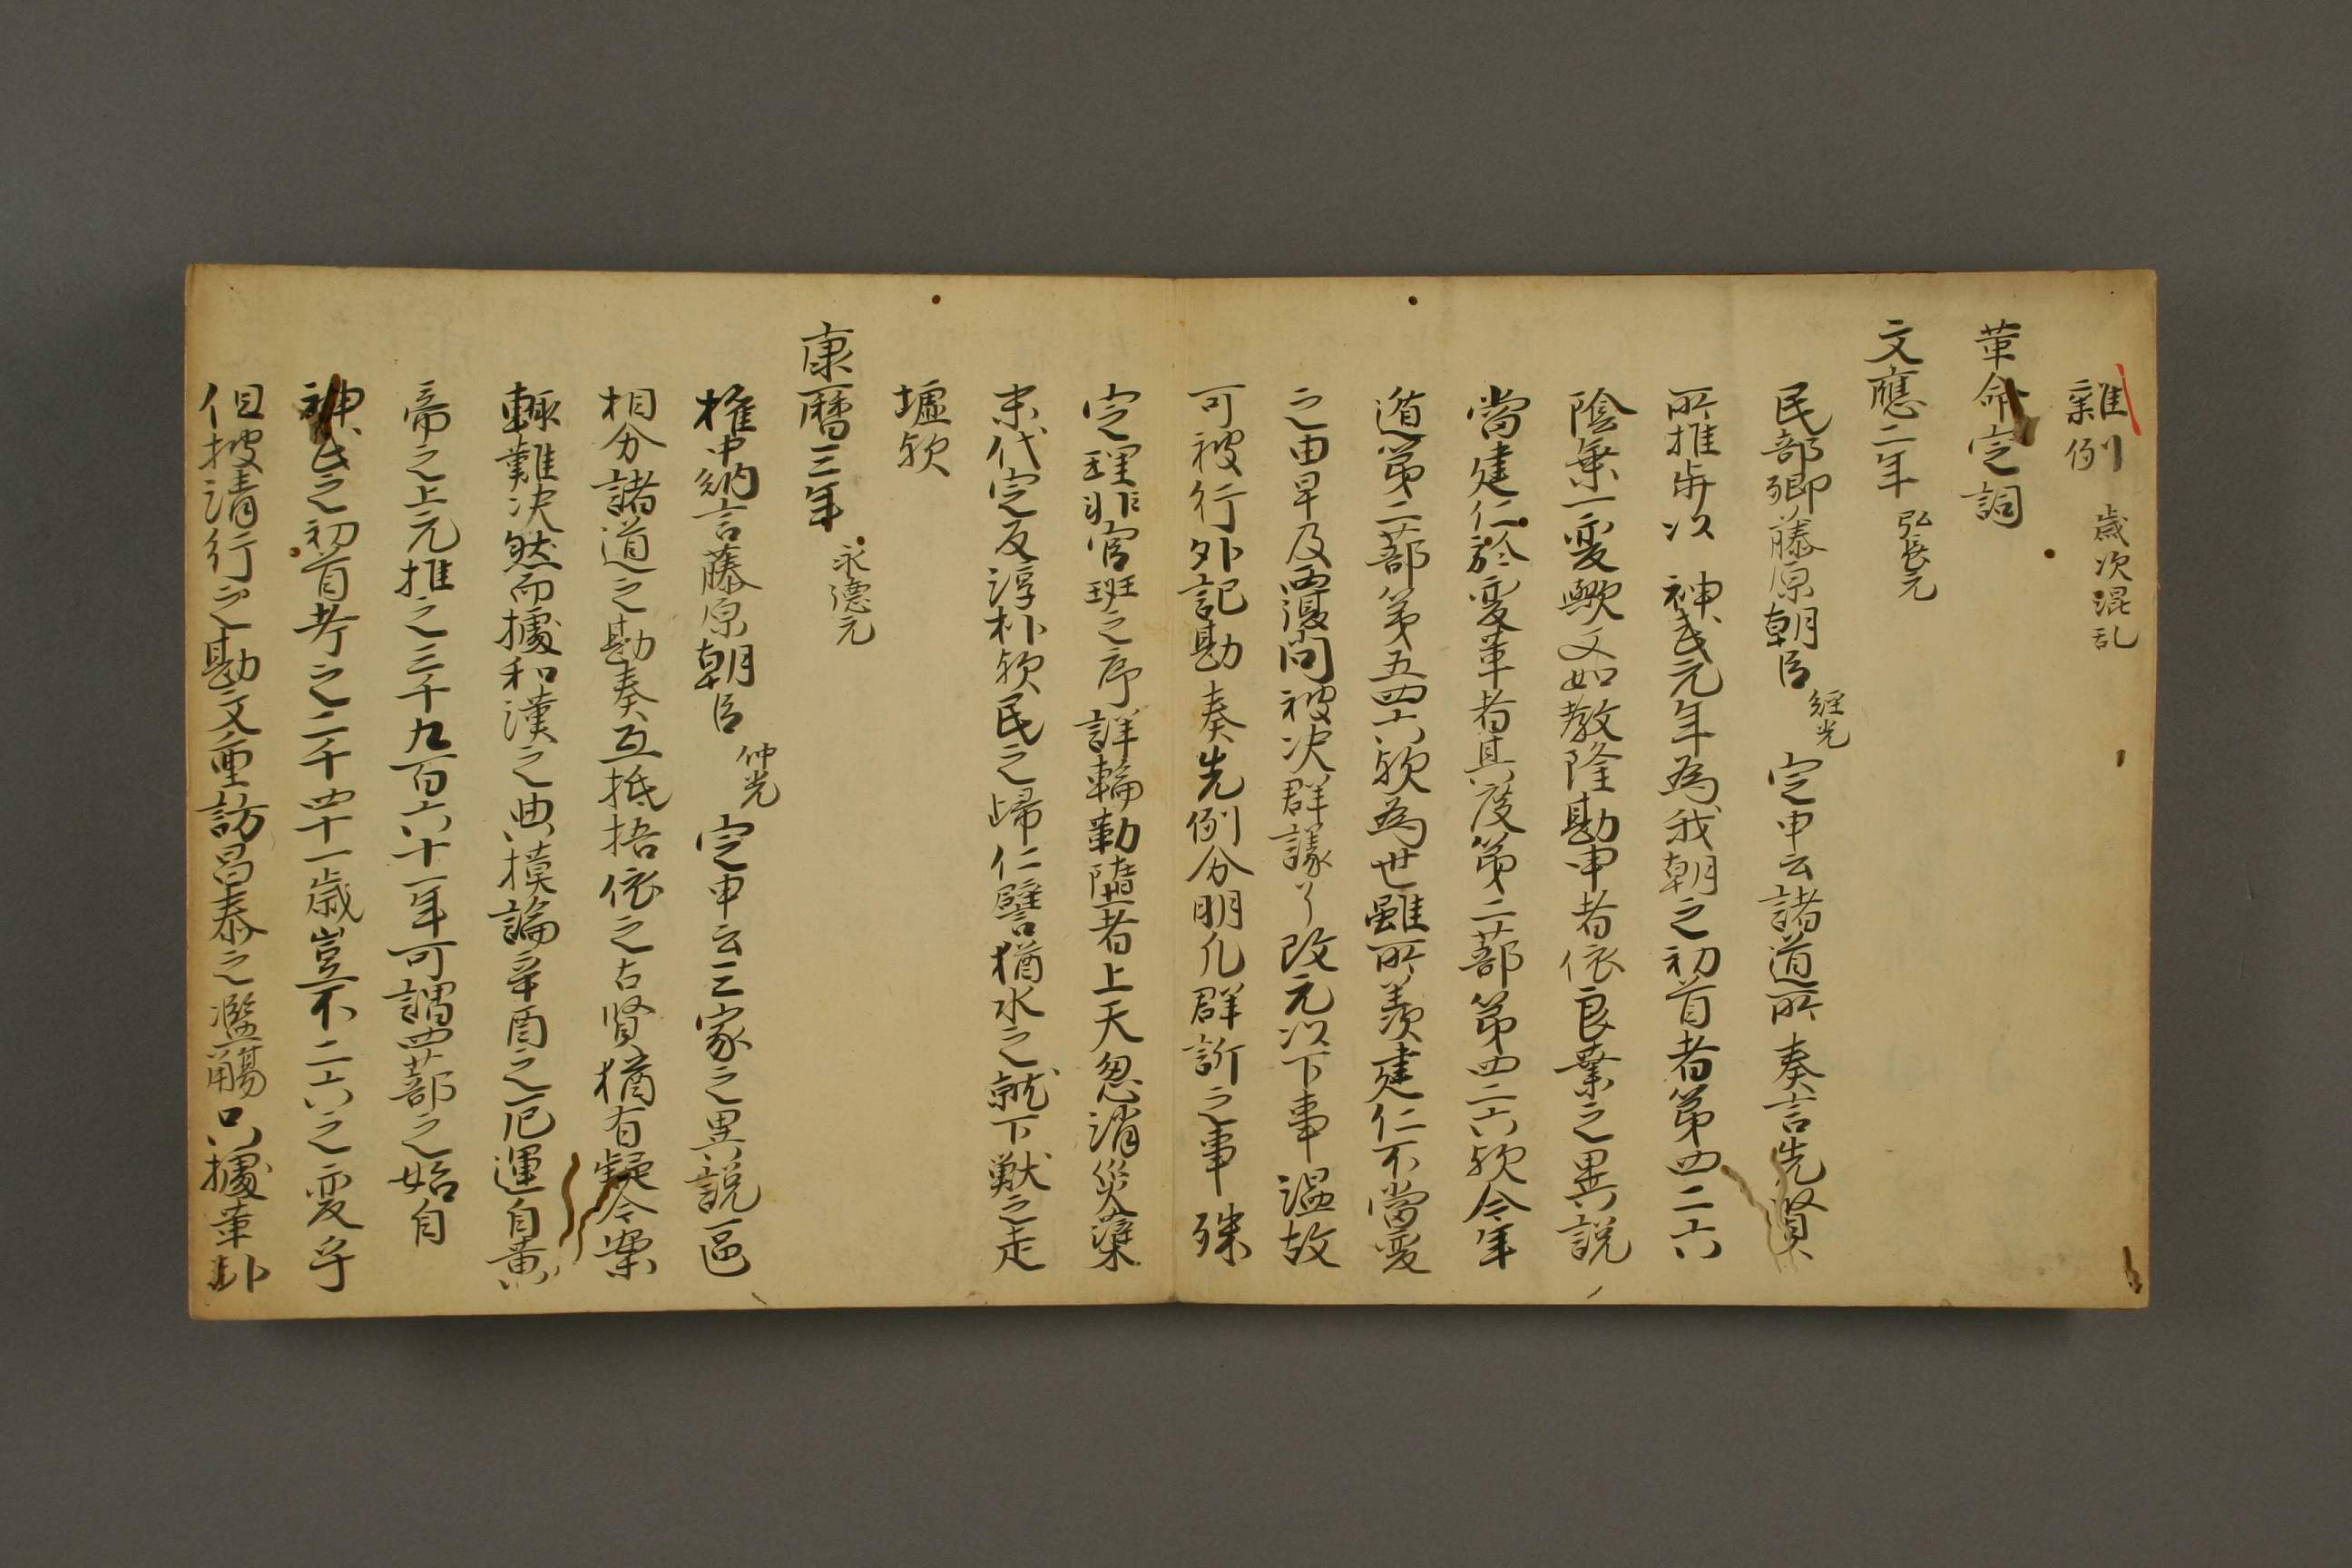 雜例 歳次混乱
革命定詞
文應二年 弘長元
民部卿藤原朝臣 経光 定申云諸道所奏言先賢
所推歩以 神武元年為我朝之初首者第四二六
陰乗一変歟又如教隆勘申者依良業之異説
當建仁於変革者其度第二蔀第四二六欤今年
道第二蔀第五四六欤為世雖所羨建仁不當変
之由早及覆問被决群議了改元以下事温故
可被行外記勘奏先例分明凡群訢之事殊
定理非官班之序詳輪勤隨者上天忽消災蘖
末代定反淳朴欤民之歸仁譬猶水之就下獣之走
壙欤
康暦三年 永徳元
権中納言藤原朝臣 仲光 定申云三家之異説區
相分諸道之勘奏互抵捂依之古賢猶有疑今案
輙難决然而據和漢之典摸論辛酉之厄運自黄
帝之上元推之三千九百六十一年可謂四蔀之始自
神武之初首考之二千四十一歳豈不二六之変乎
但披清行之勘文重訪昌泰之濫觴只據革卦